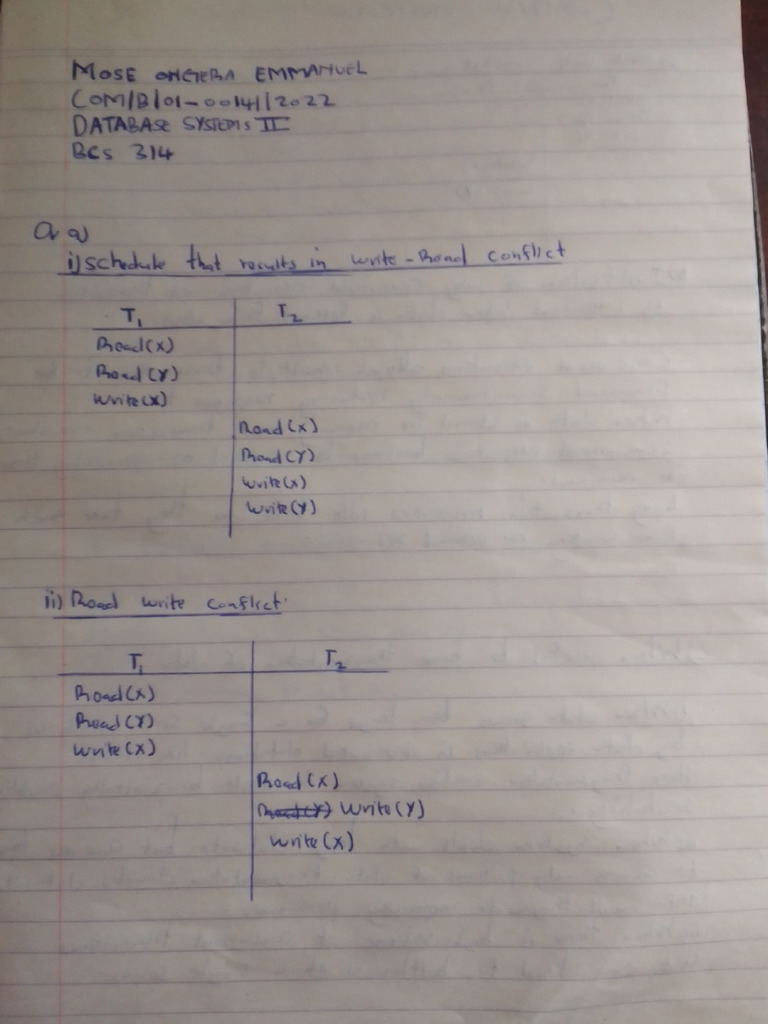 MOSE ONGERA EMMANUEL
COM/B/01-00141/2022
DATABASE SYSTEMS II
BCS 314
Q a)
i) schedule that results in write-Read conflict
T1 T2
Read(X)
Read(Y)
write(X)
Read(X)
Read(Y)
write(X)
write(Y)
ii) Read write conflict.
T1 T2
Read(X)
Read(Y)
write(X)
Read(X)
Read(Y) write(Y)
write(X)